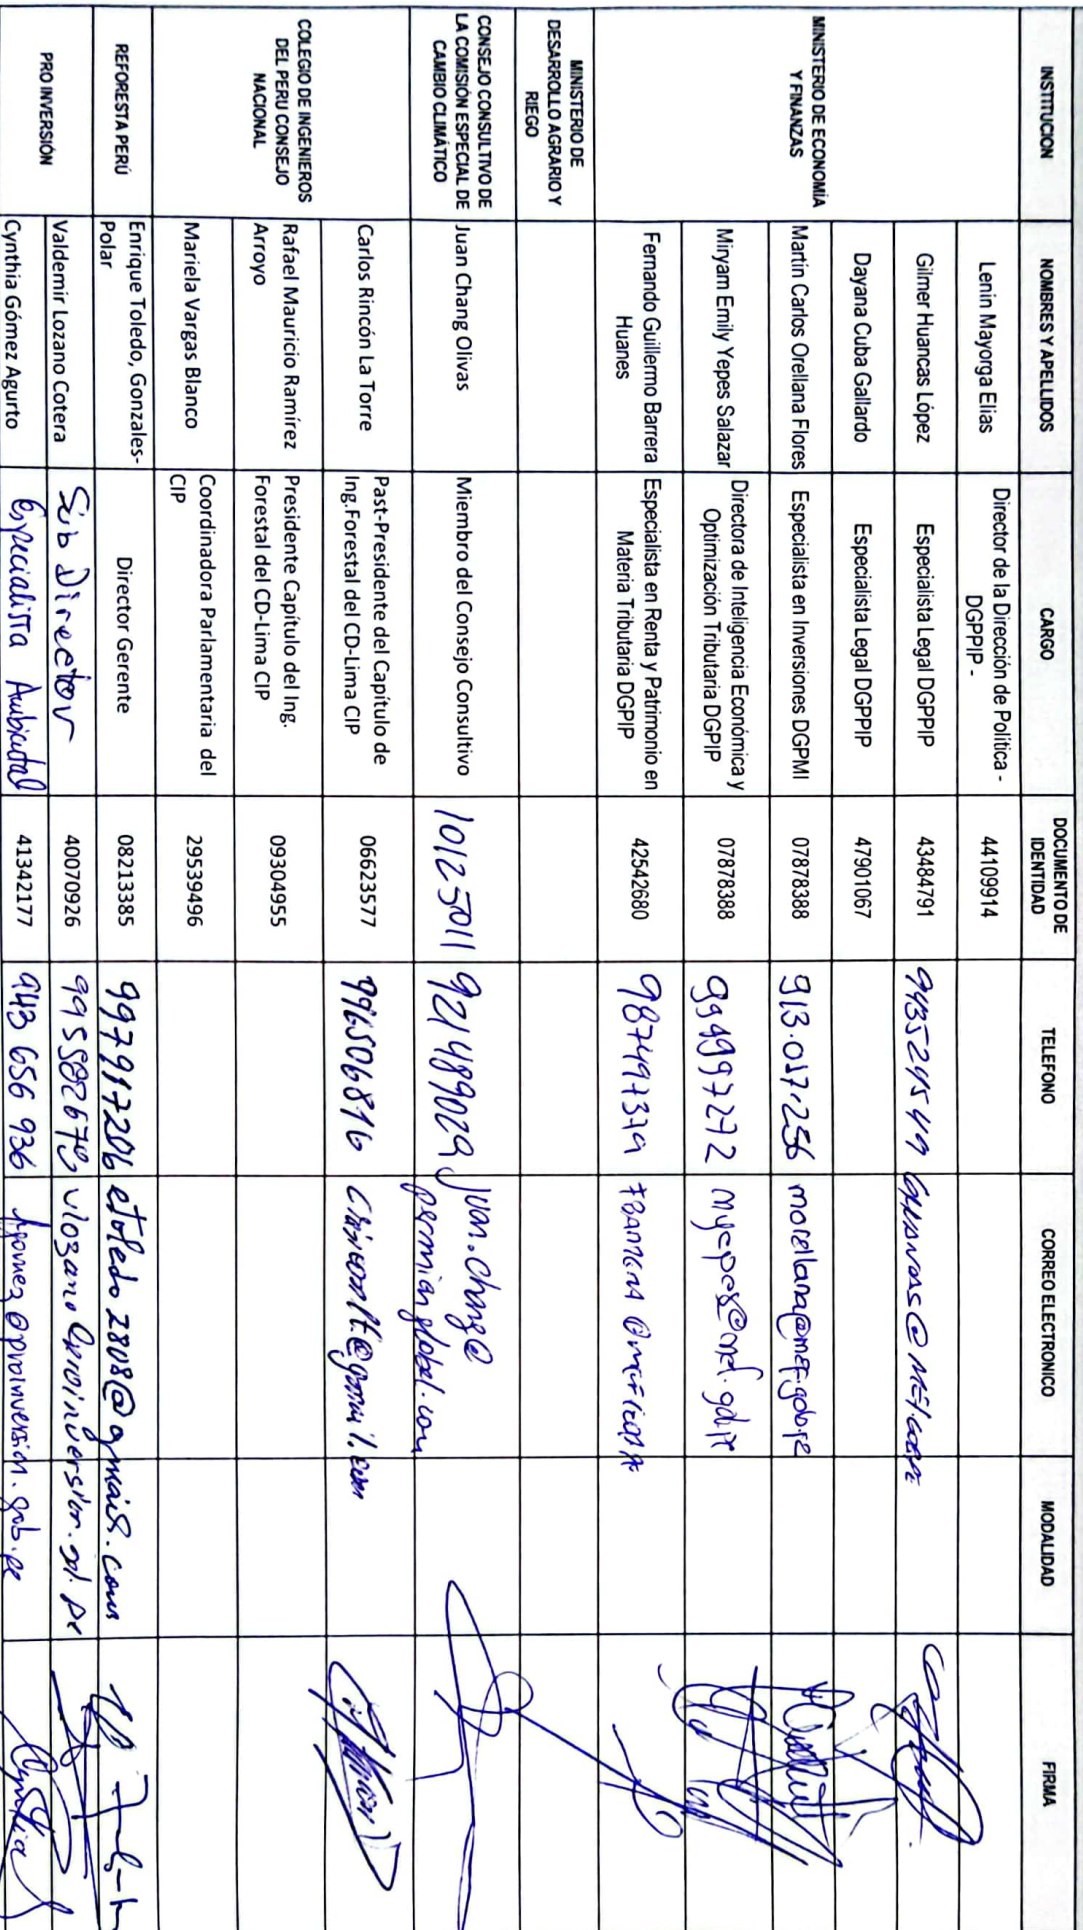 INSTITUCION NOMBRES Y APELLIDOS CARGO DOCUMENTO DE IDENTIDAD TELEFONO CORREO ELECTRONICO MODALIDAD FIRMA
MINISTERIO DE ECONOMÍA Y FINANZAS
Lenin Mayorga Elias Director de la Dirección de Política - DGPPIP - 44109914
Gilmer Huancas López Especialista Legal DGPPIP 43484791
Dayana Cuba Gallardo Especialista Legal DGPPIP 47901067
Martin Carlos Orellana Flores Especialista en Inversiones DGPMI 07878388 913.017.256 morellana@mef.gob.pe
Miryam Emily Yepes Salazar Directora de Inteligencia Económica y Optimización Tributaria DGPIP 07878388 999997272
Fernando Guillermo Barrera Huanes Especialista en Renta y Patrimonio en Materia Tributaria DGPIP 42542680 987497379
MINISTERIO DE DESARROLLO AGRARIO Y RIEGO
CONSEJO CONSULTIVO DE LA COMISIÓN ESPECIAL DE CAMBIO CLIMÁTICO
Juan Chang Olivas Miembro del Consejo Consultivo 10125011 921489029 juan.chang@permianglobal.com
COLEGIO DE INGENIEROS DEL PERU CONSEJO NACIONAL
Carlos Rincón La Torre Past-Presidente del Capítulo de Ing.Forestal del CD-Lima CIP 06623577 996506816
Rafael Mauricio Ramírez Arroyo Presidente Capítulo del Ing. Forestal del CD-Lima CIP 09304955
Mariela Vargas Blanco Coordinadora Parlamentaria del CIP 29539496
REFORESTA PERÚ
Enrique Toledo, Gonzales-Polar Director Gerente 08213385 997917206 etoledo2808@gmail.com
PRO INVERSIÓN
Valdemir Lozano Cotera Sub Director 40070926 995582679 vlozano@proinversion.gob.pe
Cynthia Gómez Agurto Especialista Ambiental 41342177 943 656 936